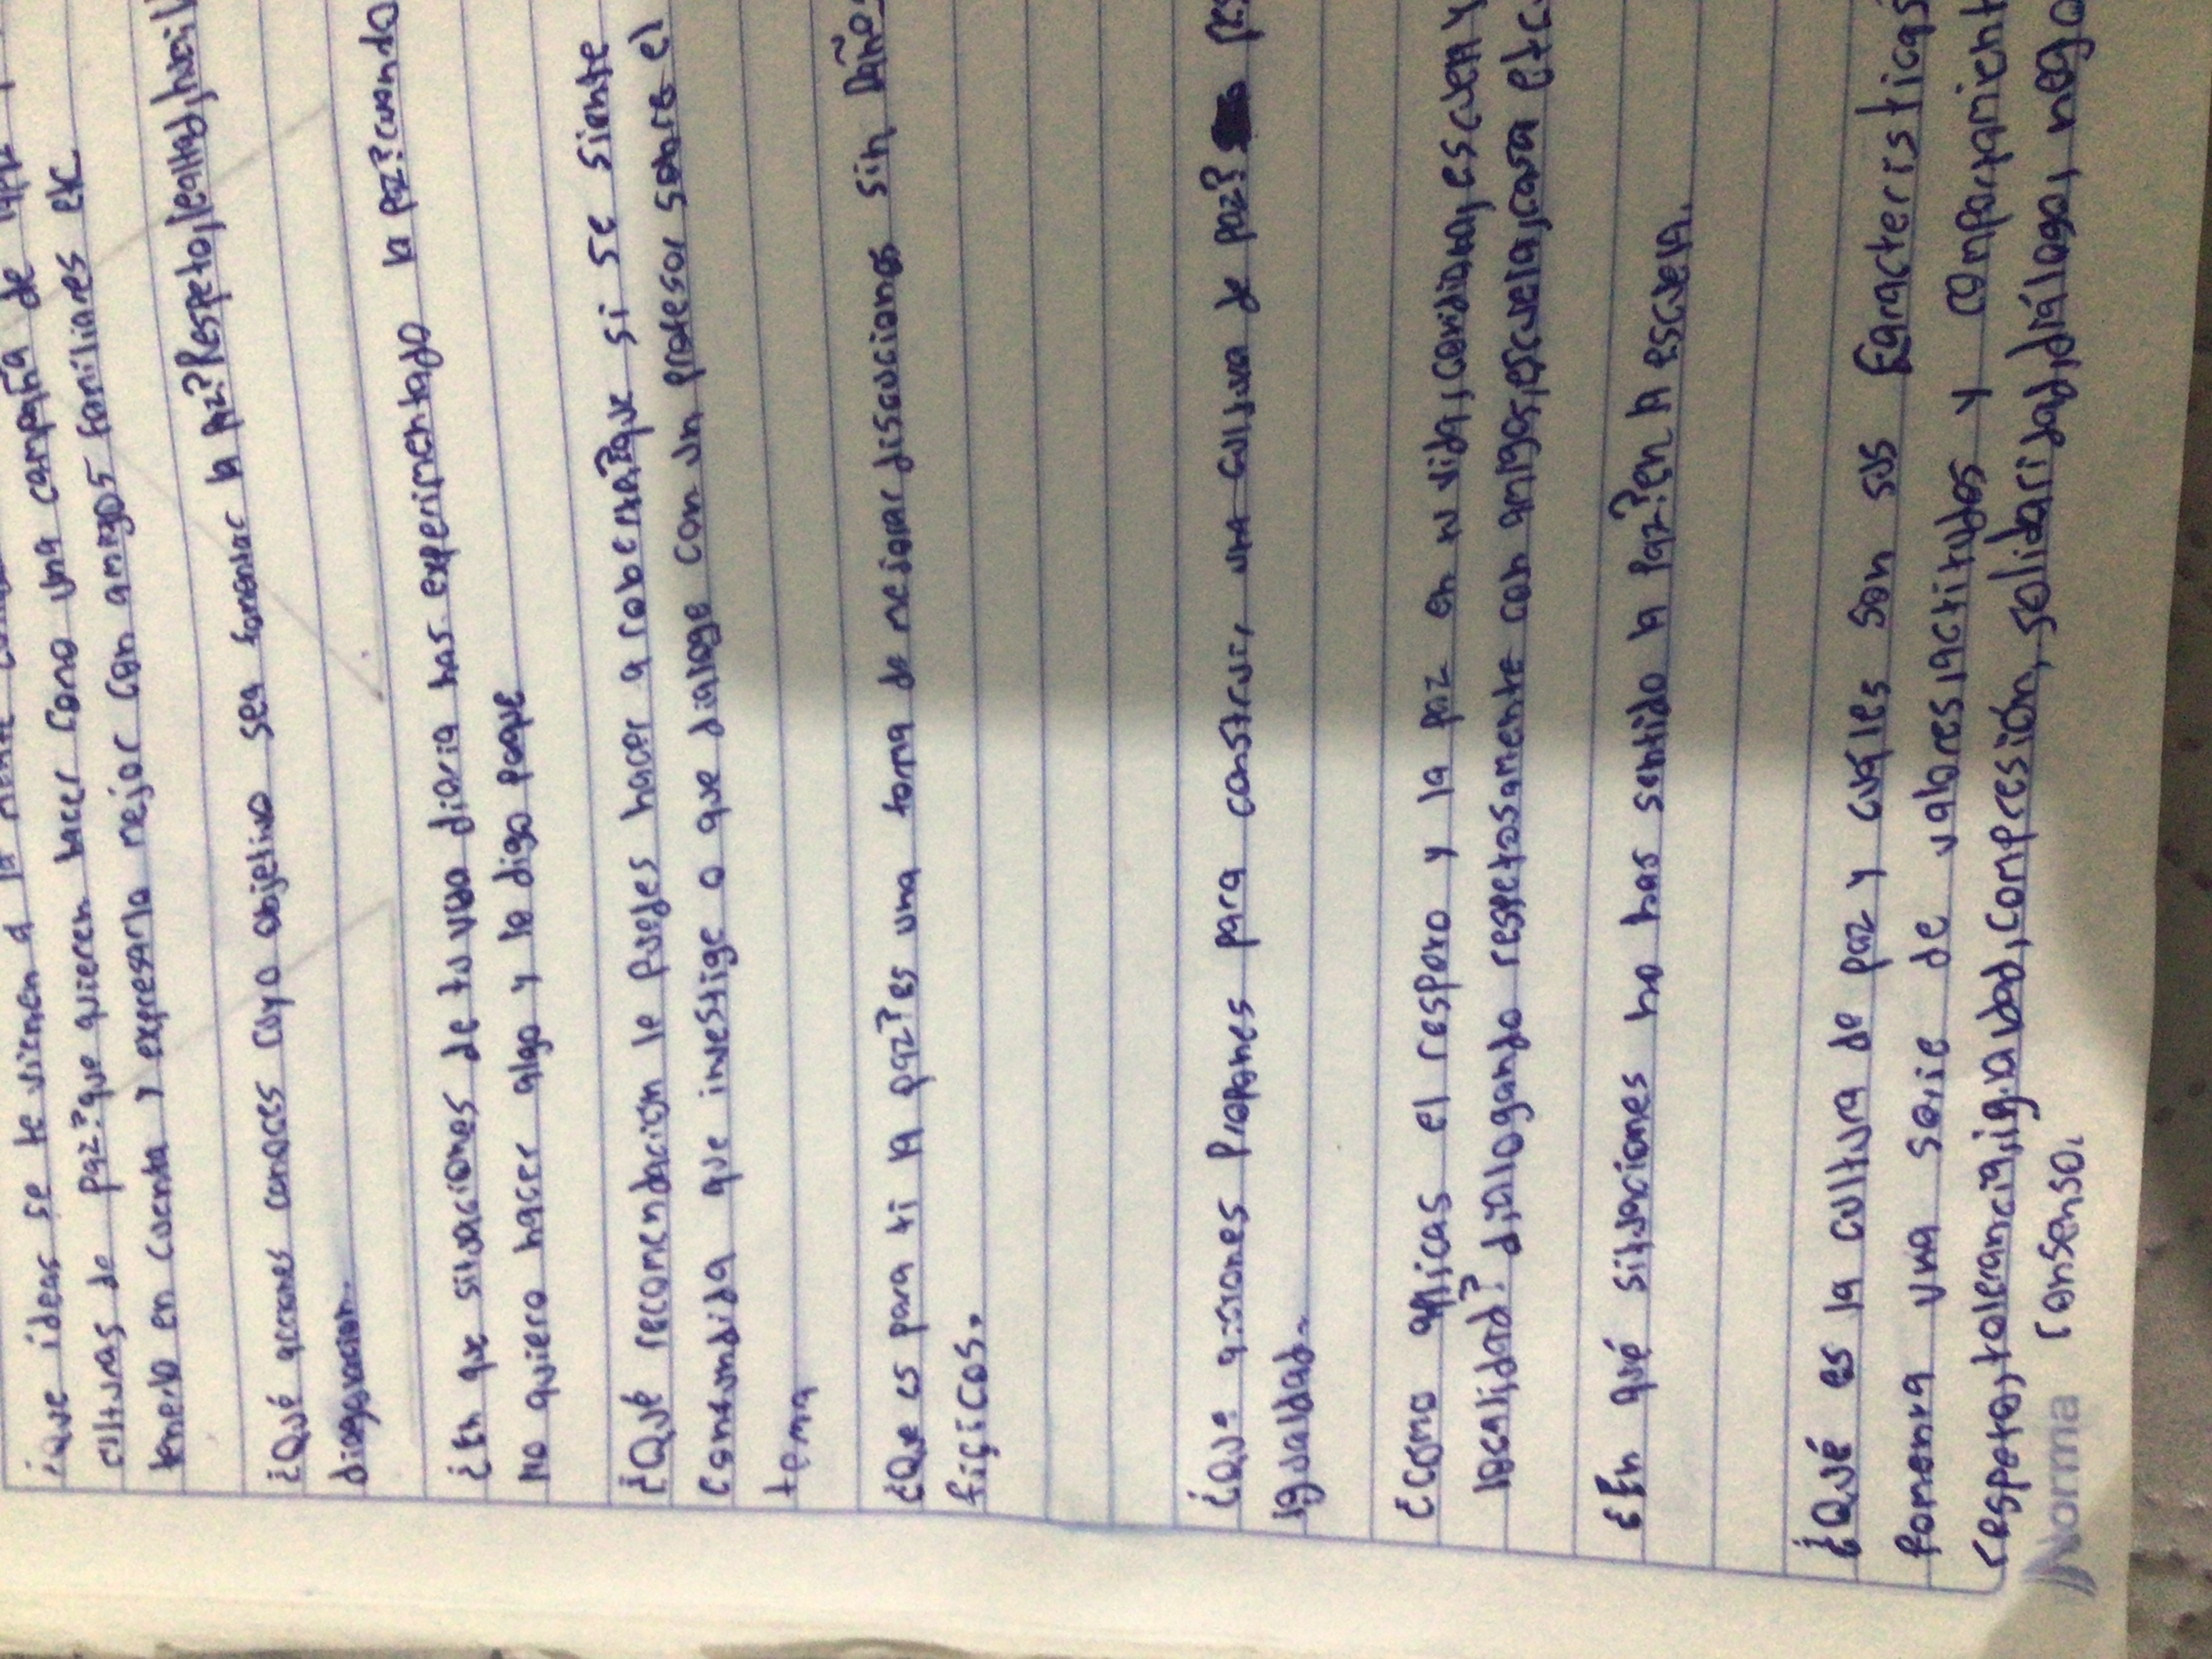 ¿Que ideas se te vienen a la mente
culturas de paz? que quieren hacer como una campaña de
tenerlo en cuenta y expresarlo mejor con amigos familiares etc
¿Qué acciones conoces cuyo objetivo sea fomentar la paz? Respeto, lealtad,
¿En que situaciones de tu vida diaria has experimentado la paz? cuando
no quiero hacer algo y le digo poque
¿Qué recomendación le puedes hacer a roberta? que si se siente
Confundida que investige o que dialoge con un profesor sobre el
tema
¿Que es para ti la paz? es una forma de mejorar discuciones sin Daños
fiçicos.
¿Que aciones Propones para construir una cultura de paz?
igualdad.
¿Como aplicas el respeto y la paz en tu vida, cotidiana, escuela y
localidad? dialogando respetosamente con amigos, escuela, casa etc.
¿En qué situaciones no has sentido la paz? en la escuela.
¿Qué es la cultura de paz y cuales son sus Características
Fomenta una serie de valores, actitudes y
respeto, tolerancia, igualdad, compresión, solidaridad, diálogo,
consenso.
Norma